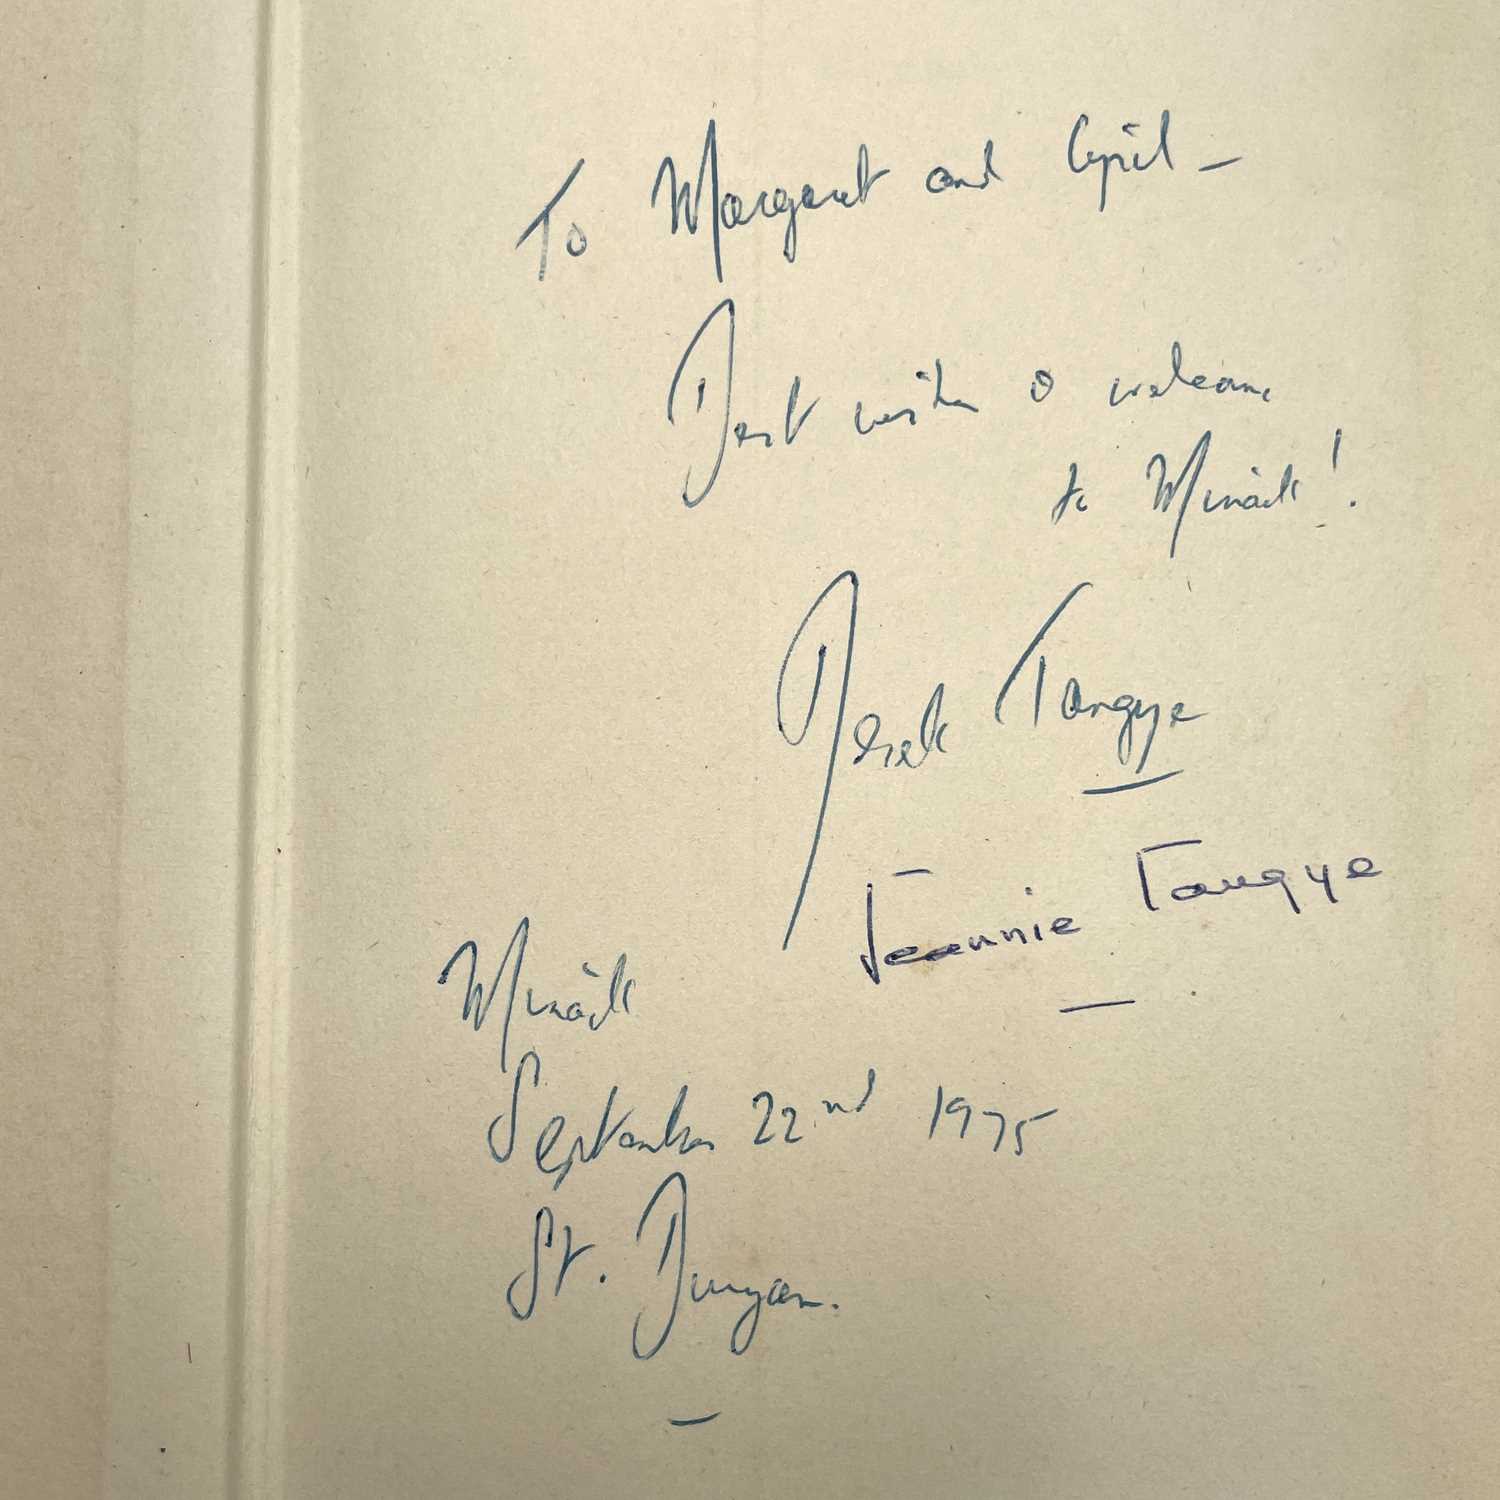 To Margaret and Cyril –
Best wishes & welcome
to Minack!
Derek Tangye
Jeannie Tangye
Minack
September 22nd 1975
St. Buryan.